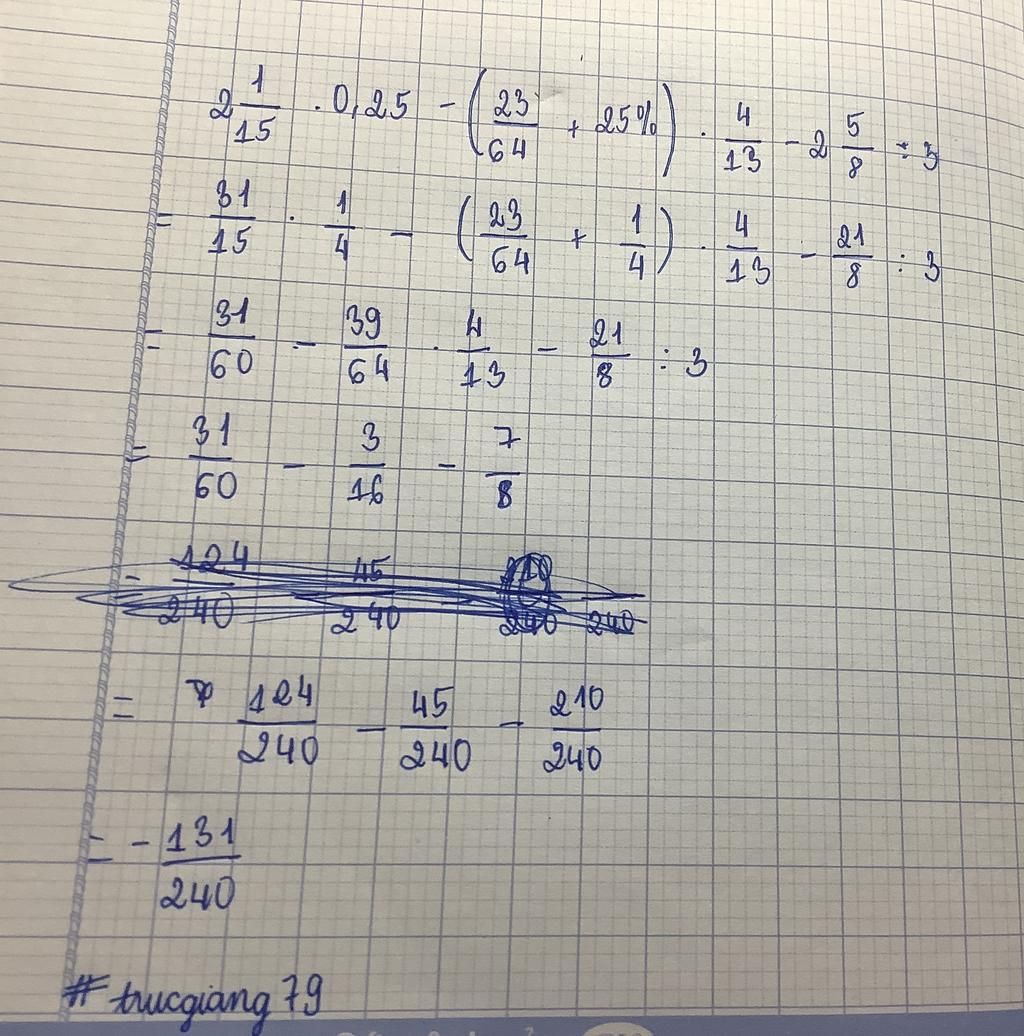 2 1/15 . 0,25 - (23/64 + 25%) . 4/13 - 2 5/8 : 3
= 31/15 . 1/4 - (23/64 + 1/4) . 4/13 - 21/8 : 3
= 31/60 - 39/64 . 4/13 - 21/8 : 3
= 31/60 - 3/16 - 7/8
= 124/240 - 45/240 - 210/240
= - 131/240
# trucgiang 79